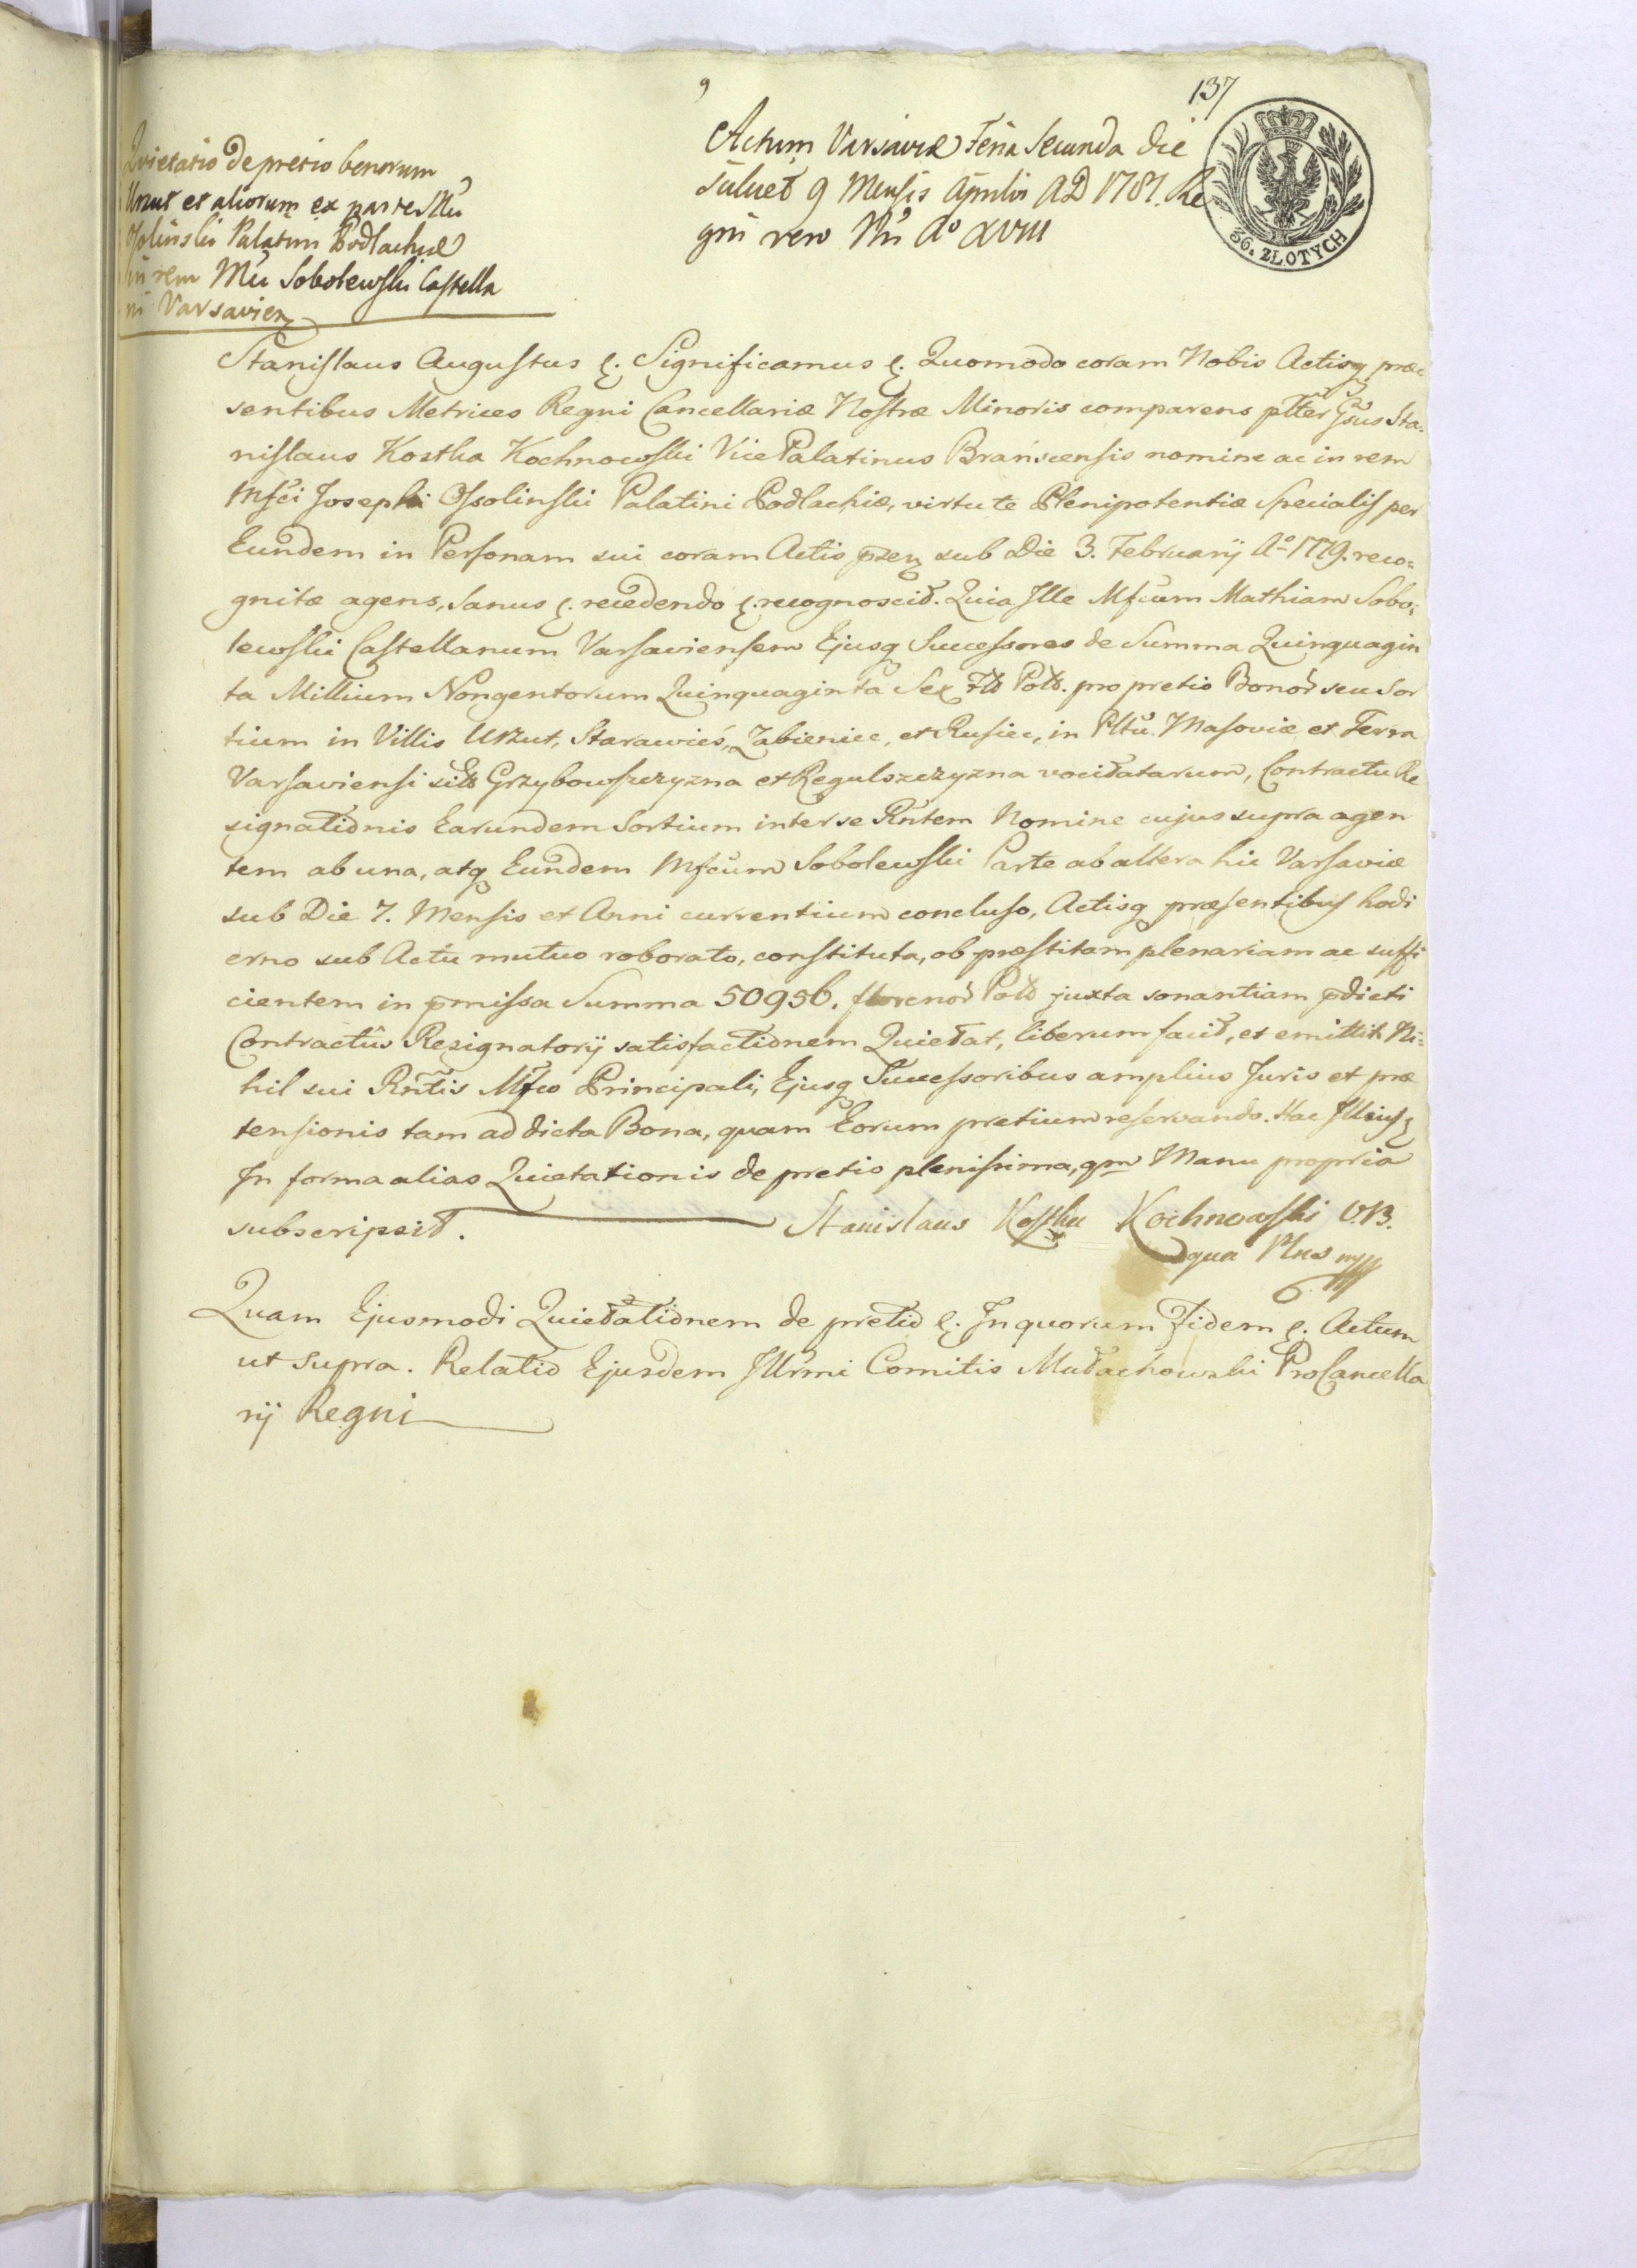 137
Actum Varsaviæ Feria Secunda die
scilicet 9 Mensis Aprilis AD 1781. Re
gni vero Nri Aº XVIII
36. ZŁOTYCH
Quietatio de pretio bonorum
Urzut et aliorum ex parte Mci
Ossolinski Palatini Podlachiæ
in rem Mci Sobolewski Castella
ni Varsavien
Stanislaus Augustus &. Significamus &. Quomodo coram Nobis Actisq præ
sentibus Metrices Regni Cancellariæ Nostræ Minoris comparens pltter Gsus Sta-
nislaus Kostka Kochnowski Vice Palatinus Branscensis nomine ac in rem
Mfci Josephi Ossolinski Palatini Podlachiæ, virtute Plenipotentiæ Specialis per
Eundem in Personam sui coram Actis pzen sub Die 3. Februarij Aº 1779. reco=
gnitæ agens, Sanus &. recedendo &. recognoscit. Quia Ille Mfcum Mathiam Sobo=
lewski Castellanum Varsaviensem Ejusq Successores de Summa Quinquagin
ta Millium Nongentorum Quinquaginta Sex Flo Pold. pro pretio Bonor seu Sor
tium in Villis Urzut, Starawieś, Zabieniec, et Rusiec, in Pltu Masoviæ et Terra
Varsaviensi sitt Grzybowszczyzna et Regulszczyzna vocitatarum, Contractu Re
signationis Earundem Sortium inter se Rntem Nomine cujus supra agen
tem ab una, atq Eundem Mfcum Sobolewski Parte ab altera hic Varsaviæ
sub Die 7. Mensis et Anni currentium concluso, Actisq præsentibus hodi
erno sub Actu mutuo roborato, constituta, ob præstitam plenariam ac suffi
cientem in pmissa Summa 50956. florenor Pold juxta sonantiam pdicti
Contractûs Resignatorij satisfactionem Quietat, liberum facit, et emittit. Ni=
hil sui Rntis Mfco Principali, Ejusq Successoribus amplius Juris et præ
tensionis tam ad dicta Bona, quam Eorum pretium reservando. Hac Illius
In forma alias Quietationis de pretio plenissima, qm Manu propria
subscripsit. Stanislaus Kostka Kochnowski V.B.
qua Plns mpp
Quam Ejusmodi Quietationem de pretio &. In quorum Fidem &. Actum
ut Supra. Relatio Ejusdem Illrmi Comitis Małachowski ProCancella
rij Regni